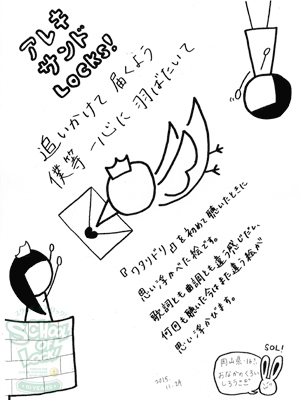 アレキ
サンド
LOCKS!
追いかけて 届くよう
僕等 一心に 羽ばたいて
『ワタリドリ』を初めて聴いたときに
思い浮かべた絵です。
歌詞とも曲調とも違う感じだし、
何回も聴いた今はまた違う絵が
思い浮かびます。
2015.
11.29
SOL!
岡山県・16才
おなかのくろい
しろうさぎ
SCHOOL
OF
LOCK!